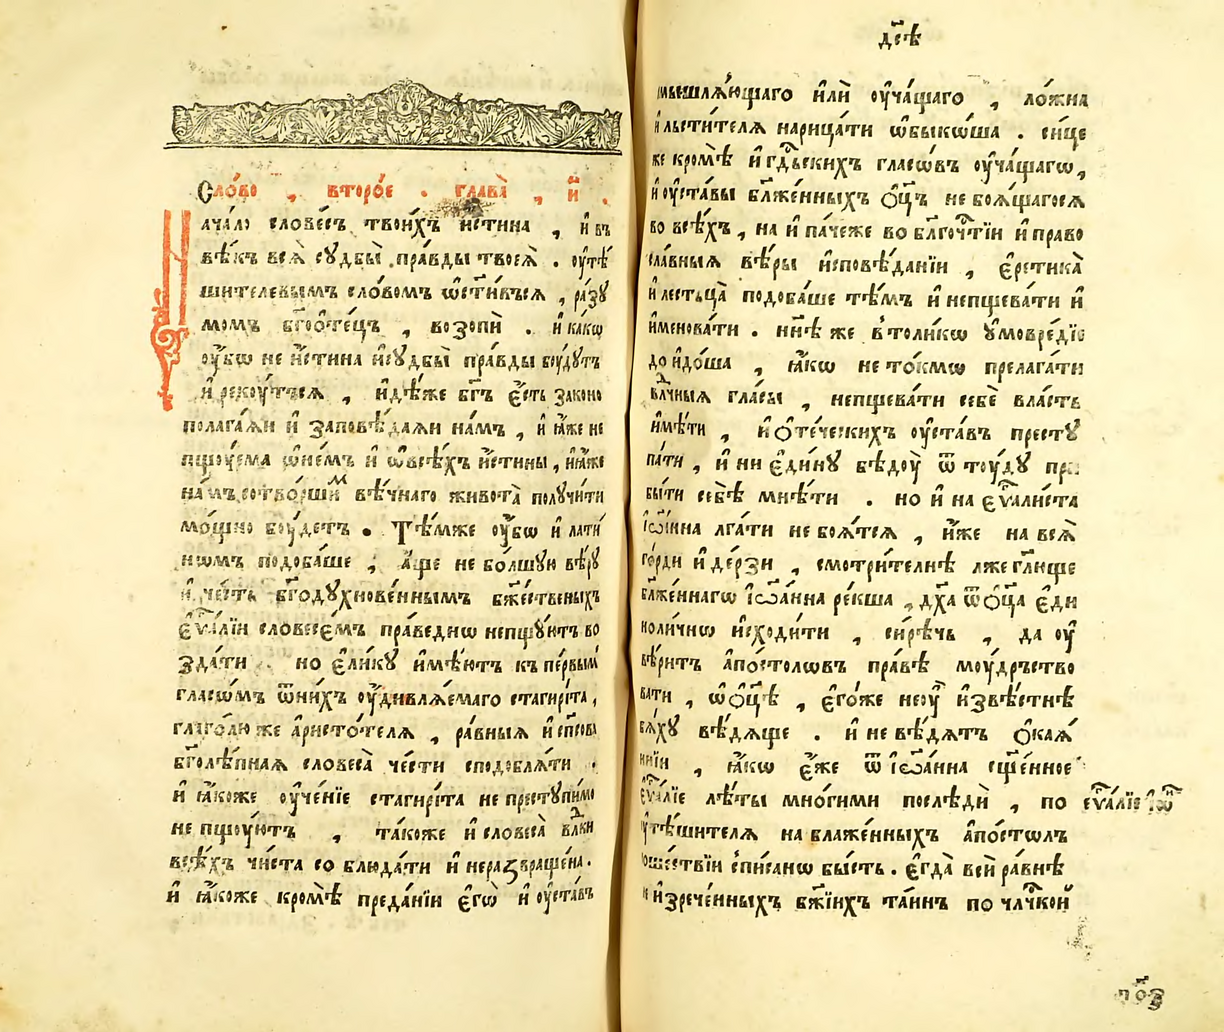 Сло́во , второ́е . глава̀ , и҃ .
Нача́ло слове́съ твои́хъ и҆́стина , и҆ въ
вѣ́къ всѧ̀ сꙋдбы̀ пра́вды твоеѧ̀ . оу҆тѣ́
шителевымъ сло́вомъ ѡ҆сті́всѧ , ра́зꙋ
момъ бг҃оо҆те́цъ , возопѝ . и҆ ка́кѡ
оу҆́бѡ не и҆́стина и҆ сꙋдбы̀ пра́вды бꙋ́дꙋтъ
и҆ рекꙋ́тсѧ , и҆дѣ́же бг҃ъ є҆́сть законо
полага́ѧи и҆ заповѣ́даѧи на́мъ , и҆ ꙗ҆́же не
пщꙋ́ема ѡ҆ не́мъ и҆ ѡ҆ всѣ́хъ и҆́стины , и҆ ꙗ҆́же
на́мъ сотво́ршимъ вѣ́чнаго живота̀ получи́ти
мо́щно бꙋ́детъ . Тѣ́мже оу҆́бѡ и҆ лати́
нѡмъ подоба́ше ; а҆́ще не бо́лшꙋи вѣ́рꙋ
и҆ че́сть бг҃одꙋхнове́ннымъ бж҃е́ственыхъ
є҆ѵⷢ҇а́лїи словесе́мъ пра́веднѡ непщꙋ́итъ во
зда́ти . но є҆ли́кꙋ и҆мѣ́ютъ къ пе́рвым
гласѡ́мъ ѿ ни́хъ оу҆дивлѧ́емаго стагирі́та ,
глаго́лю же а҆ристо́телѧ , ра́вныѧ и҆
бг҃олѣ́пнаѧ словеса̀ че́сти сподоблѧ́ти .
и҆ ꙗ҆́коже оу҆че́нїе стагирі́та не престꙋпи́мо
не пщꙋ́ютъ , та́коже и҆ словеса̀ влⷣки
всѣ́хъ чи́ста со блюда́ти и҆ неразвраще́на .
и҆ ꙗ҆́коже кро́мѣ преда́нїи є҆гѡ̀ и҆ оу҆ста́въ
дс҃ѣ
мышлѧ́ющаго и҆лѝ оу҆ча́щаго , ло́жна
и҆ льсти́телѧ нарица́ти ѡ҆быко́ша . си́це
же кро́мѣ и҆ гдⷭ҇ьскихъ гласѡ́въ оу҆ча́щагѡ ,
и҆ оу҆ста́вы бл҃же́нныхъ ѻ҆ц҃ъ не боѧ́щагосѧ
во всѣ́хъ , на и҆ па́чеже во блг҃оче́стїи и҆ право
сла́вныѧ вѣ́ры и҆сповѣ́данїи , є҆ретика̀
и҆ лестьца̀ подоба́ше тѣ́мъ и҆ непщева́ти и҆
и҆менова́ти . нн҃ѣ же в толи́кѡ ᲂумовре́дїе
до и҆до́ша , ꙗ҆́кѡ не то́кмѡ прелага́ти
влⷣчныѧ гла́сы , непщева́ти себѐ вла́сть
и҆мѣ́ти , и҆ ѻ҆те́ческихъ оу҆ста́въ престꙋ
па́ти , и҆ ни є҆ди́нꙋ бѣ́доу ѿ тоу́дꙋ при
бы́ти себѣ̀ мнѣ́ти . но и҆ на є҆ѵⷢ҇али́ста
і҆ѡа́нна лга́ти не боѧ́тсѧ , и҆́же на всѧ̀
го́рди и҆ де́рзи , смотри́телнѣ лжегл҃юще
бл҃же́ннагѡ і҆ѡа́нна ре́кша , дх҃а ѿ ѻ҆ц҃а є҆ди
ноли́чнѡ и҆сходи́ти , си́рѣчь , да оу҆
вѣ́ритъ а҆по́столѡвъ пра́вѣ моу́дрьство
вати , ѡ҆ ѻ҆ц҃ѣ , є҆го́же неоу҆ и҆звѣ́стнѣ
бѧ́хꙋ вѣ́дѧще . и҆ не вѣ́дѧтъ ѻ҆каѧ́
ннїи , ꙗ҆́кѡ є҆́же ѿ і҆ѡа́нна сщ҃е́нное
є҆ѵⷢ҇а́лїе лѣ́ты мно́гими послѣдѝ , по
є҆ѵⷢ҇а́лїе і҆ѡⷩ҇
оу҆тѣ́шителѧ на блаже́нныхъ а҆по́столъ
соше́ствїи спи́санѡ бы́сть . є҆гда̀ всѝ ра́внѣ
и҆зрече́нныхъ бж҃їихъ та́инъ по чл҃ческой
по́з